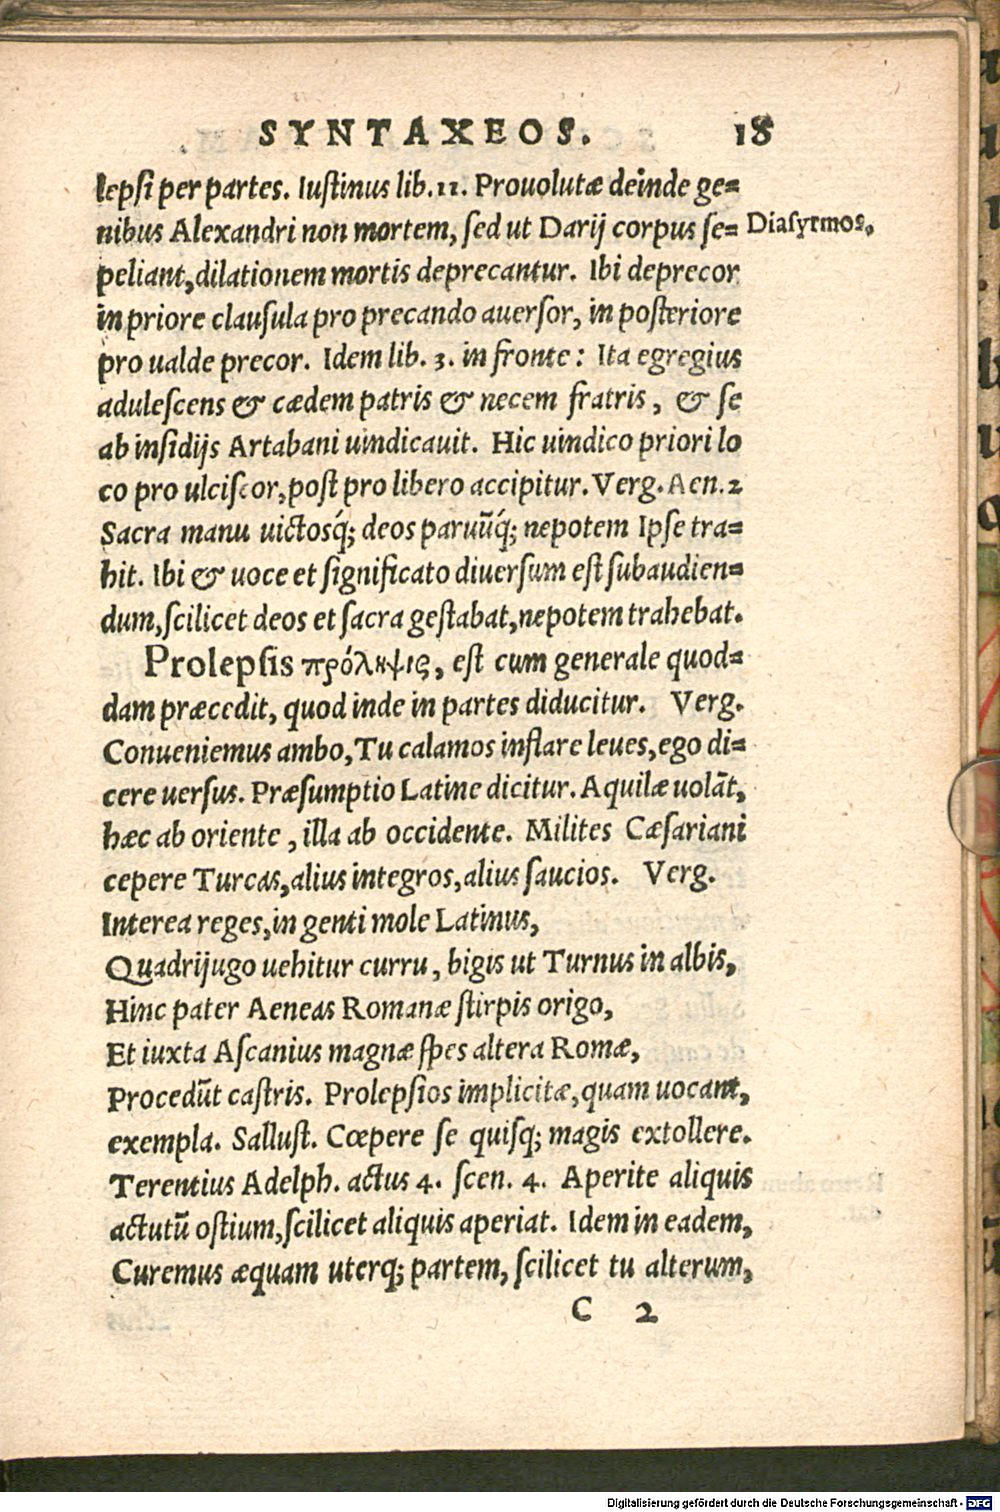 SYNTAXEOS. 18
lepsi per partes. Iustinus lib. 11. Prouolutæ deinde ge=
nibus Alexandri non mortem, sed ut Darij corpus se=
Diasyrmos.
peliant, dilationem mortis deprecantur. Ibi deprecor
in priore clausula pro precando auersor, in posteriore
pro ualde precor. Idem lib. 3. in fronte: Ita egregius
adulescens & cædem patris & necem fratris, & se
ab insidijs Artabani uindicauit. Hic uindico priori lo
co pro ulciscor, post pro libero accipitur. Verg. Aen. 2
Sacra manu uictosq́; deos paruũq́; nepotem Ipse tra=
hit. Ibi & uoce et significato diuersum est subaudien=
dum, scilicet deos et sacra gestabat, nepotem trahebat.
Prolepsis πρόληψις, est cum generale quod=
dam præcedit, quod inde in partes diducitur. Verg.
Conueniemus ambo, Tu calamos inflare leues, ego di=
cere uersus. Præsumptio Latine dicitur. Aquilæ uolãt,
hæc ab oriente, illa ab occidente. Milites Cæsariani
cepere Turcas, alius integros, alius saucios. Verg.
Interea reges, in genti mole Latinus,
Quadrijugo uehitur curru, bigis ut Turnus in albis,
Hinc pater Aeneas Romanæ stirpis origo,
Et iuxta Ascanius magnæ spes altera Romæ,
Procedũt castris. Prolepsios implicitæ, quam uocant,
exempla. Sallust. Cœpere se quisq; magis extollere.
Terentius Adelph. actus 4. scen. 4. Aperite aliquis
actutũ ostium, scilicet aliquis aperiat. Idem in eadem,
Curemus æquam uterq; partem, scilicet tu alterum,
C 2
Digitalisierung gefördert durch die Deutsche Forschungsgemeinschaft - DFG